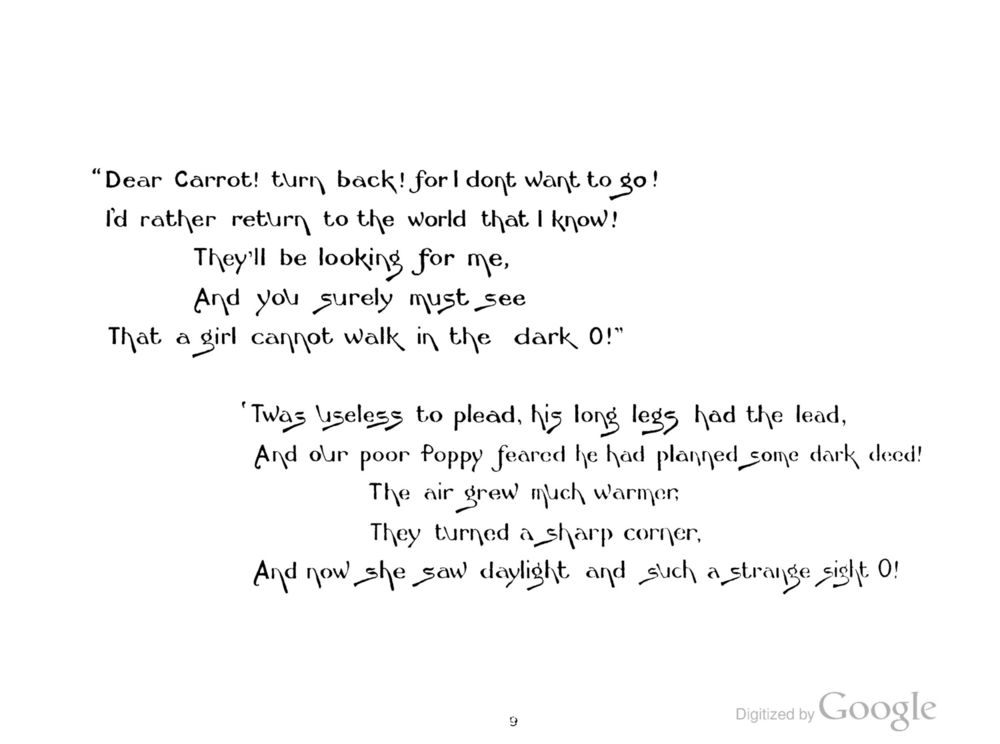 “Dear Carrot! turn back! for I dont want to go!
I'd rather return to the world that I know!
They'll be looking for me,
And you surely must see
That a girl cannot walk in the dark O!”
'Twas useless to plead, his long legs had the lead,
And our poor Poppy feared he had planned some dark deed!
The air grew much warmer,
They turned a sharp corner,
And now she saw daylight and such a strange sight O!
9
Digitized by Google